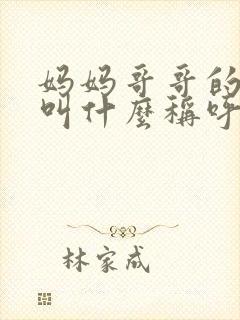 妈妈哥哥的
叫什麼稱呼
林家成